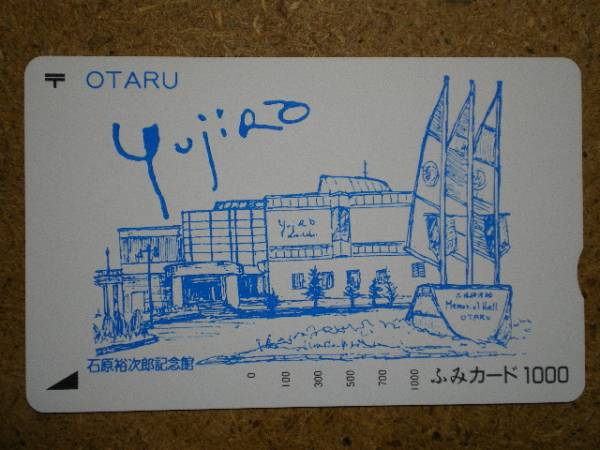 〒 OTARU
Yujiro
Yujiro
Memorial Hall
OTARU
石原裕次郎記念館
0 100 300 500 700 1000
ふみカード1000